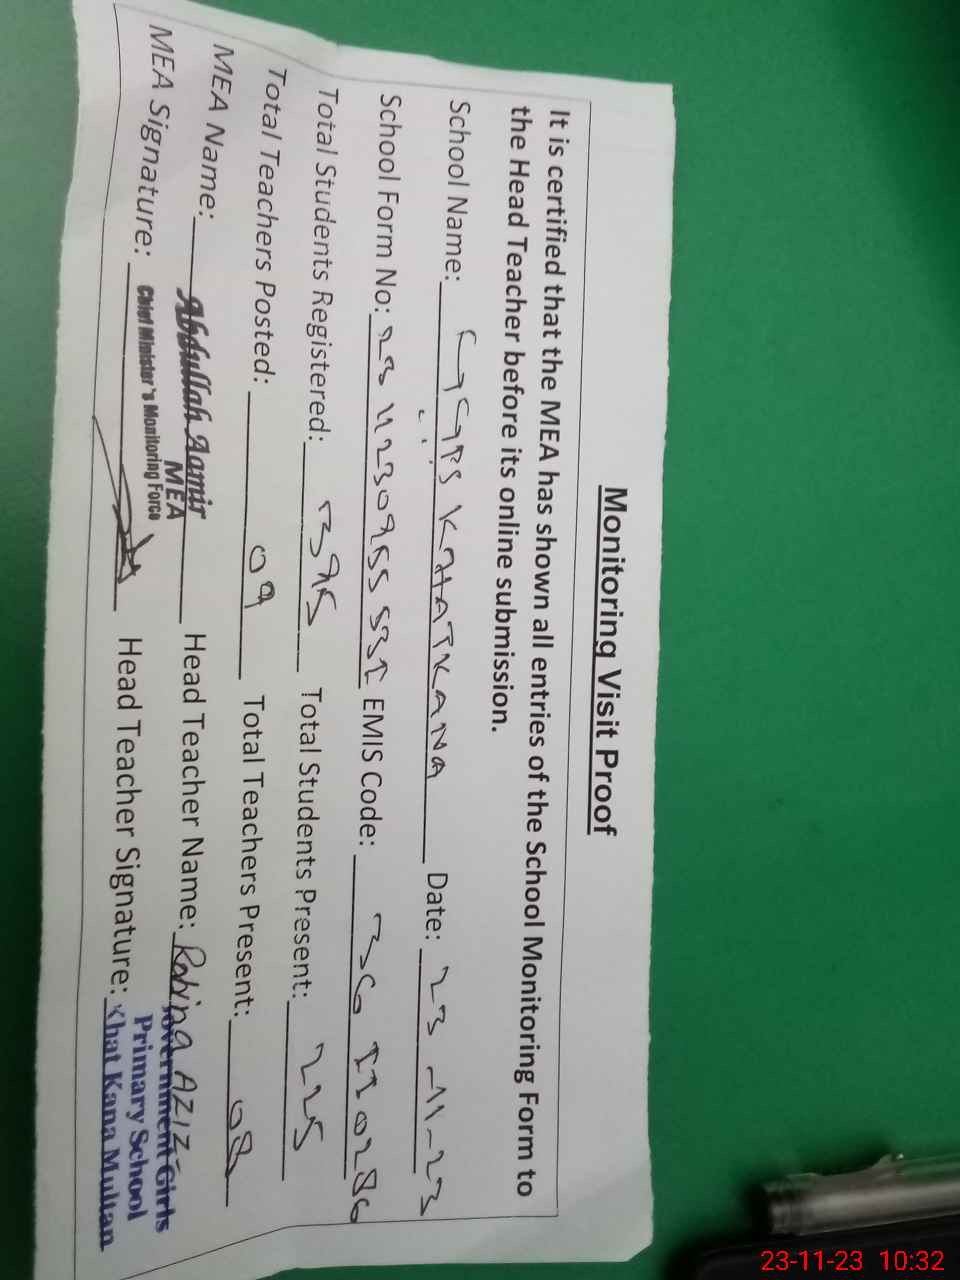 Monitoring Visit Proof
It is certified that the MEA has shown all entries of the School Monitoring Form to
the Head Teacher before its online submission.
School Name: GGPS KHATKANA Date: 23-11-23
School Form No: EMIS Code: 36110286
Total Students Registered: 395 Total Students Present: 225
Total Teachers Posted: 09 Total Teachers Present: 08
MEA Name: Abdullah Aamir Head Teacher Name: Robina AZIZ
MEA
Chief Minister's Monitoring Force
MEA Signature: Head Teacher Signature:
Government Girls
Primary School
Khat Kana Multan
23-11-23 10:32